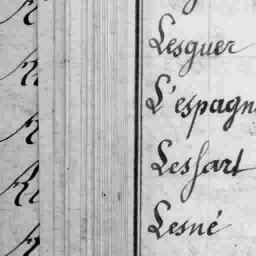 Lesguer
L'espagn
Lessart
Lesné